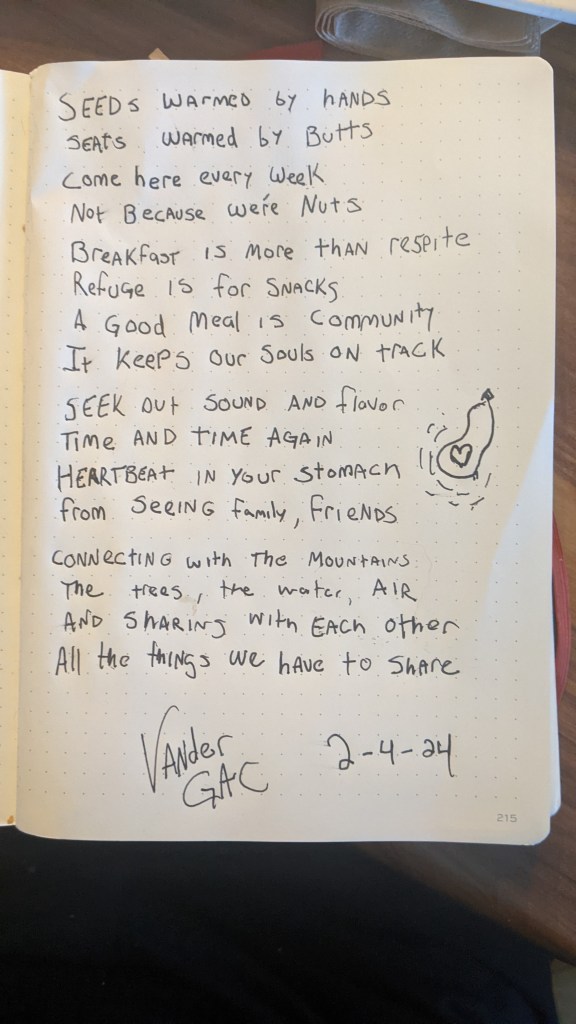 SEEDS WARMED by hANDS
SEATS WARMED by Butts
Come here every Week
Not Because we're Nuts
BreAKfAST IS More thAN respite
Refuge IS for SNACKS
A Good Meal is COMMUNITY
It KeePS our Souls ON TRACK
SEEK Out SOUND AND flavor
Time AND TIME AGAIN
HEARTBEAt IN Your Stomach
from SeeING family, FrieNDS
CONNectING with The MOUNTAINS
The trees, the water, AIR
AND SHARING With EACh other
All the thINGS we hAve to ShARe
VANder
GAC
2-4-24
215